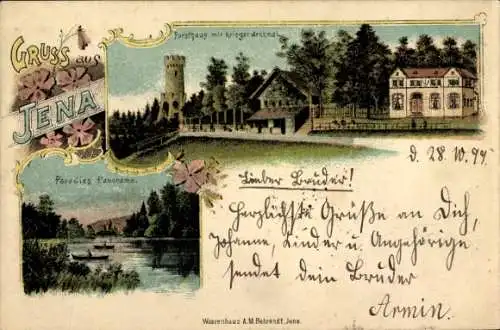 GRUSS aus
JENA
Forsthaus mit Kriegerdenkmal.
Paradies Panorama.
d. 28.10.99.
Lieber Bruder!
Herzlichste Grüße an Dich,
Johanne, Kinder u. Angehörige
sendet dein Bruder
Armin.
Warenhaus A.M. Behrendt, Jena.